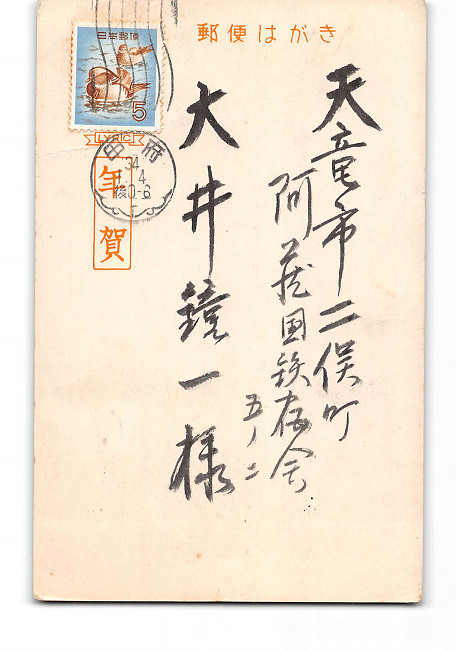 郵便はがき
日本郵便
5
LYRIC
甲府
34
1.4
後0-6
年賀
天竜市二俣町
阿蔵国鉄宿舎
五ノ二
大井鏡一様